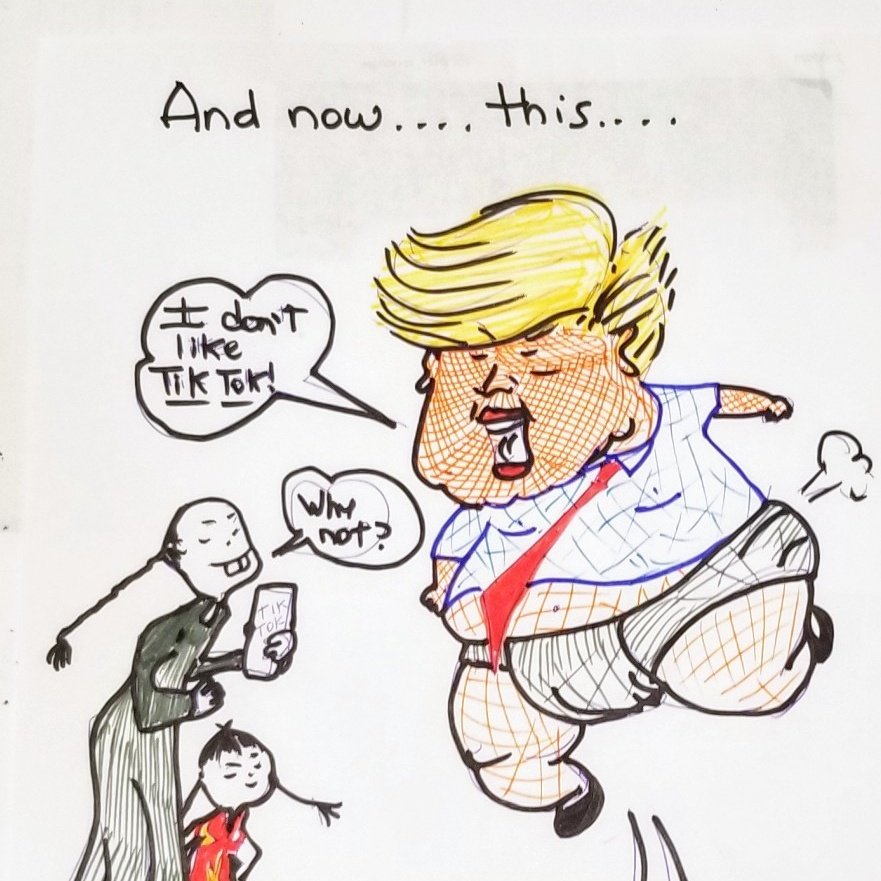 And now.... this....
I don't
like
TIK TOK!
Why
not?
TIK
TOK